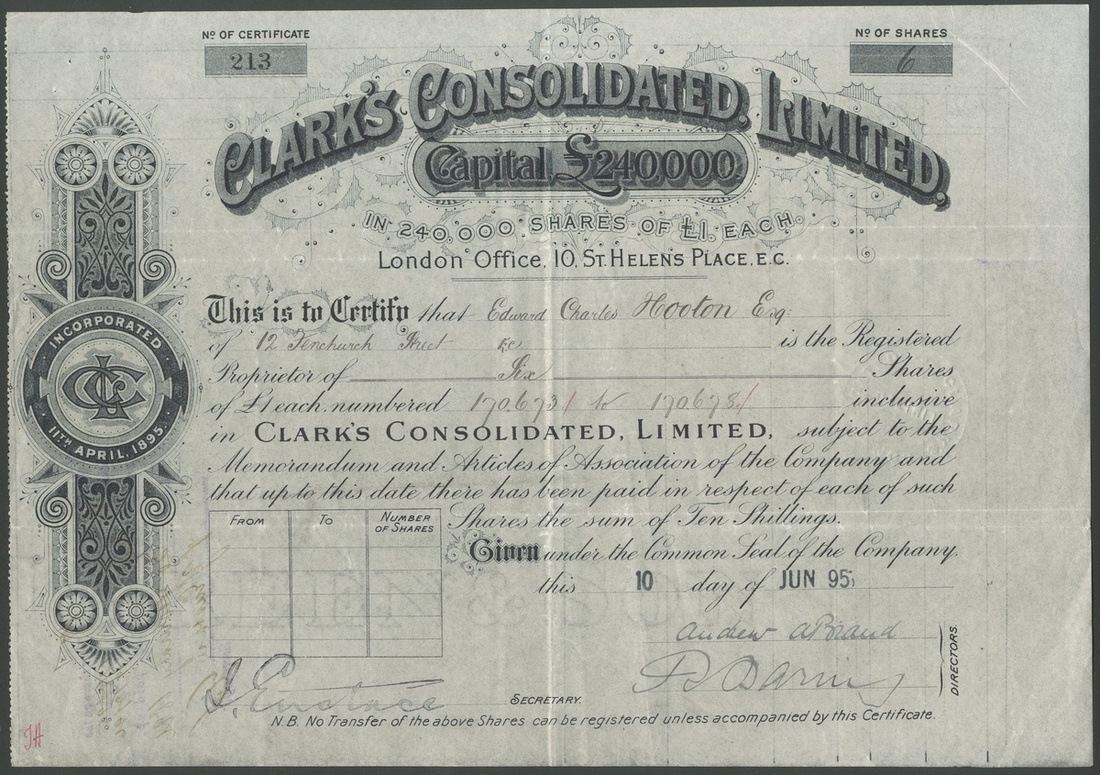 Nº OF CERTIFICATE
213
Nº OF SHARES
6
CLARK'S CONSOLIDATED, LIMITED,
Capital, £240,000.
IN 240,000 SHARES OF £1. EACH.
London Office, 10, St. Helen's Place, E.C.
This is to Certify that Edward Charles Hooton Esq.
of 12 Fenchurch Street E.C. is the Registered
Proprietor of Six Shares
of £1 each, numbered 170,673/ to 170,678/ inclusive
in CLARK'S CONSOLIDATED, LIMITED, subject to the
Memorandum and Articles of Association of the Company and
that up to this date there has been paid in respect of each of such
Shares the sum of Ten Shillings.
Given under the Common Seal of the Company,
this 10 day of JUN 95
FROM TO NUMBER OF SHARES
INCORPORATED
11TH APRIL, 1895.
Andrew
DIRECTORS.
J. Eustace
SECRETARY.
N.B. No Transfer of the above Shares can be registered unless accompanied by this Certificate.
JH